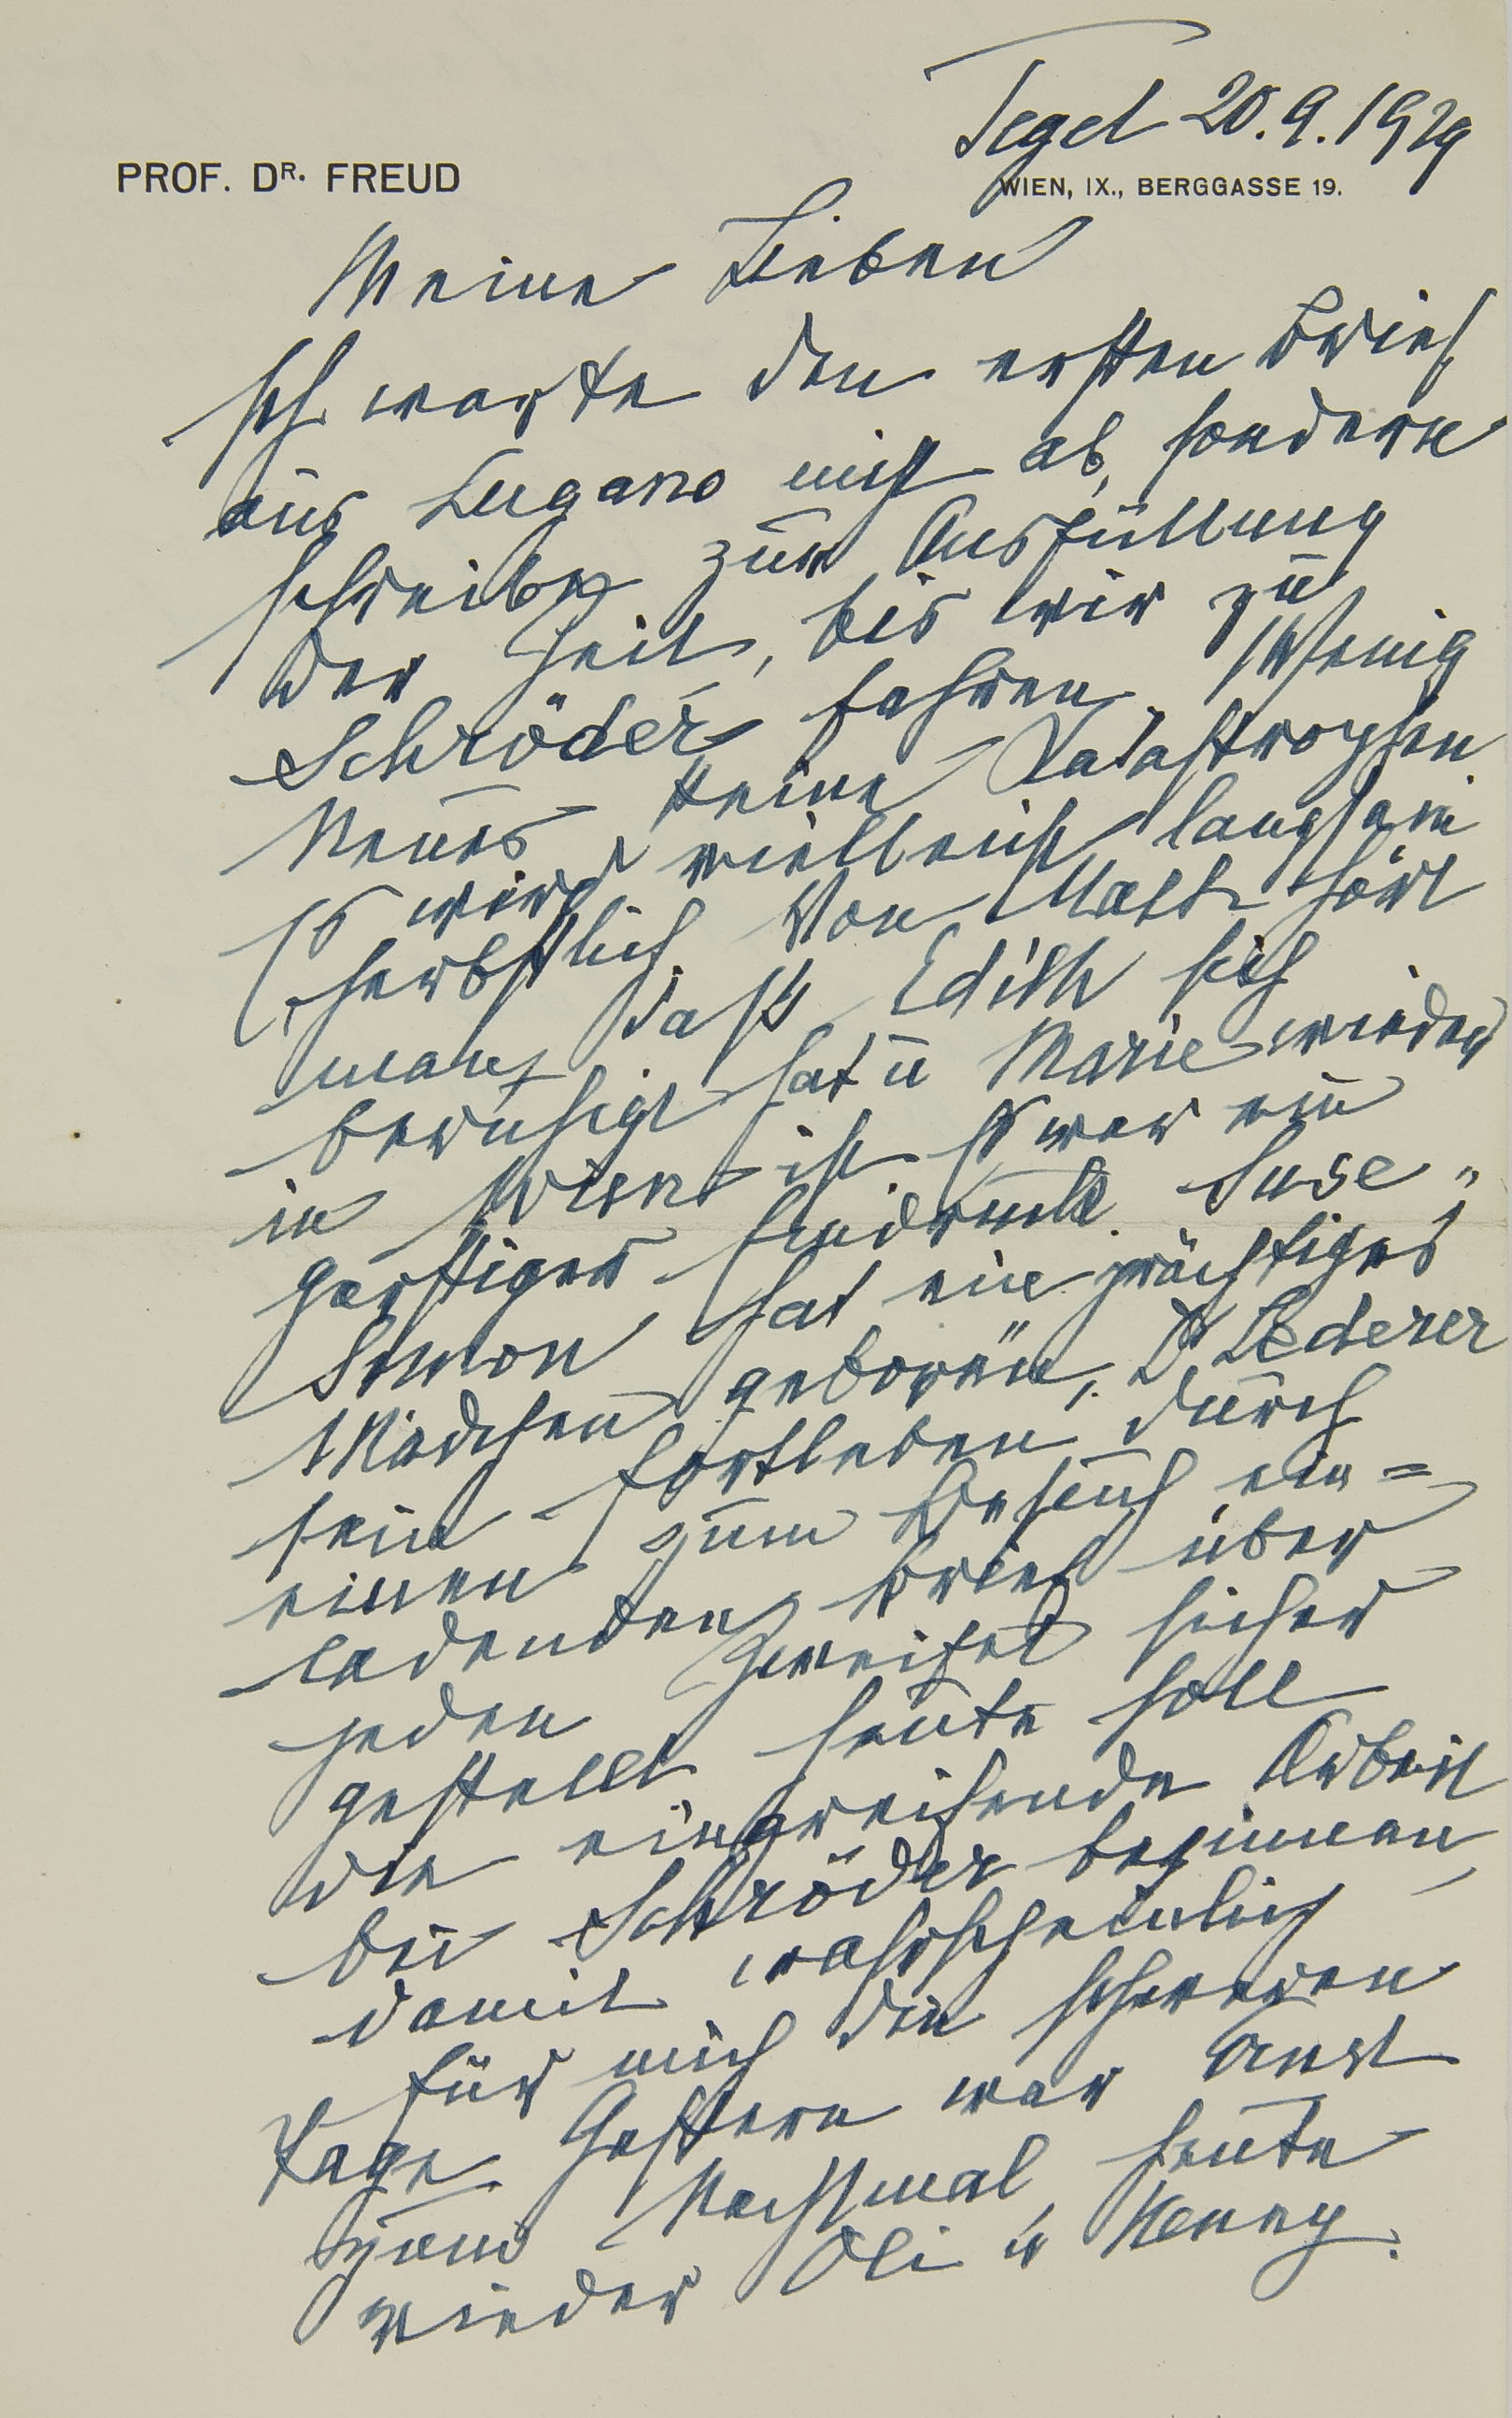 Tegel 20.9.1929
PROF. DR. FREUD
WIEN, IX., BERGGASSE 19.
Meine Lieben
Ich warte den ersten Brief
aus Lugano nicht ab, sondern
schreibe zur Ausfüllung
der Zeit, bis wir zu
Schröder fahren. Wenig
Neues, keine Katastrophen
Es wird vielleicht langsam
herbstlich. Von Math hört
man, daß Edith sich
beruhigt hat u Marie wieder
in Wien ist. Es war ein
garstiger Eindruck. Suse
Simon hat ein prächtiges
Mädchen geboren, Dr Lederer
sein Fortleben durch
einen zum Besuch ein=
ladenden Brief über
jeden Zweifel sicher
gestellt. Heute soll
die eingreifende Arbeit
bei Schröder beginnen,
damit wahrscheinlich
für mich die schweren
Tage. Gestern war Ernst
zum Nachtmal, heute
wieder Oli u Henny.